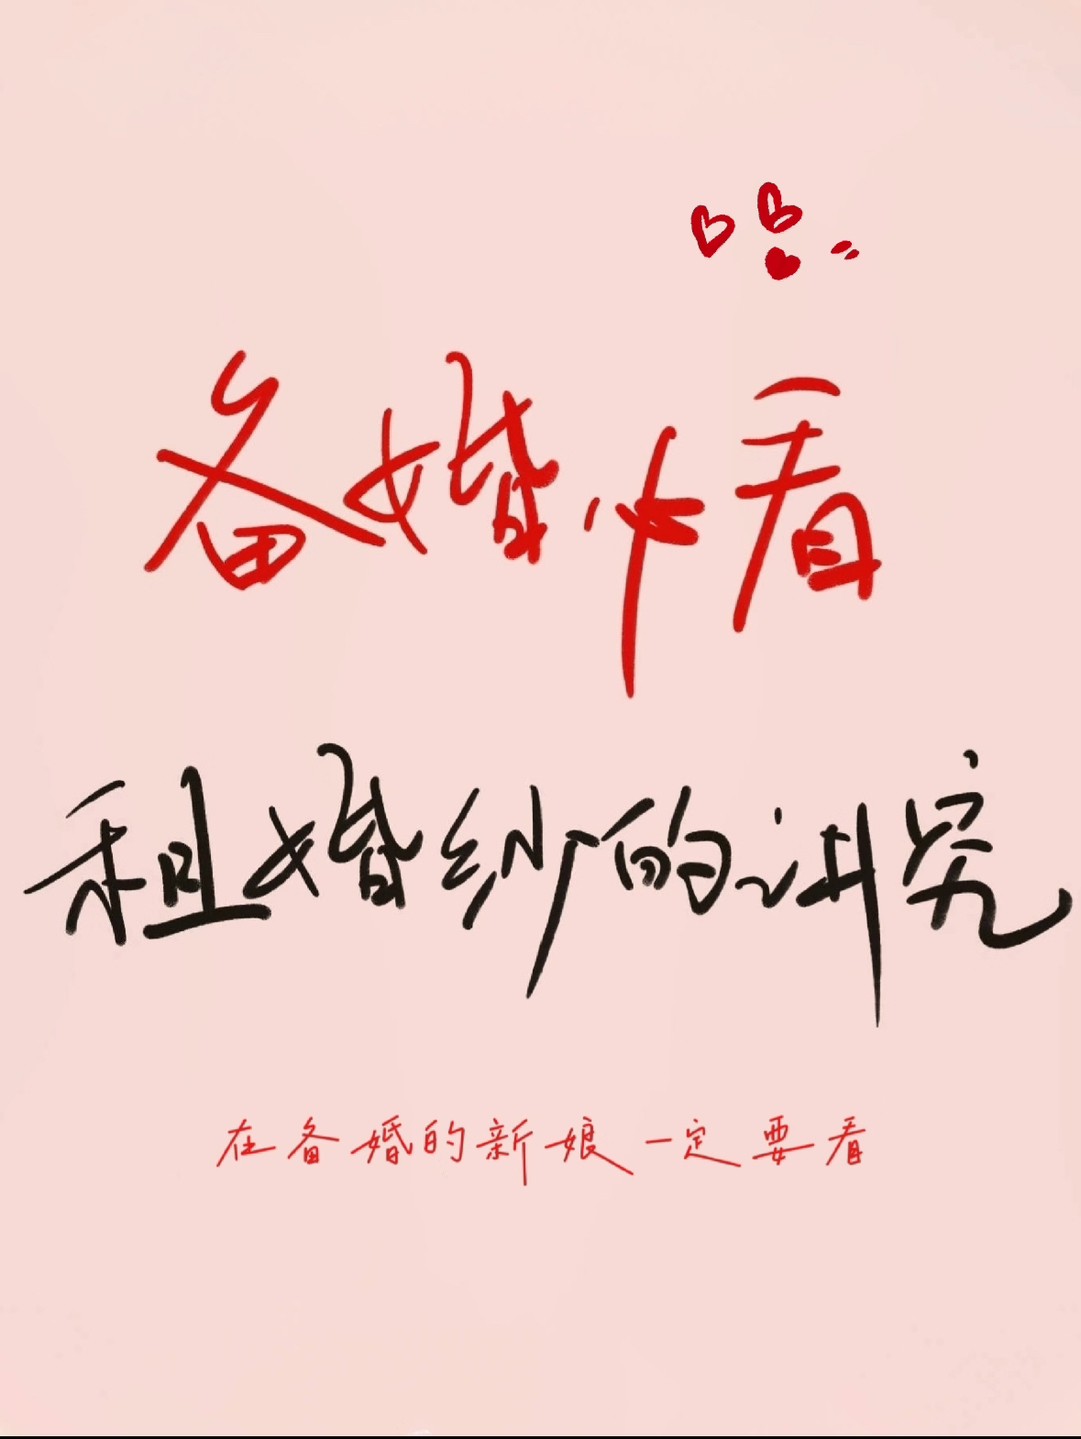 备婚必看
租婚纱的讲究
在备婚的新娘一定要看